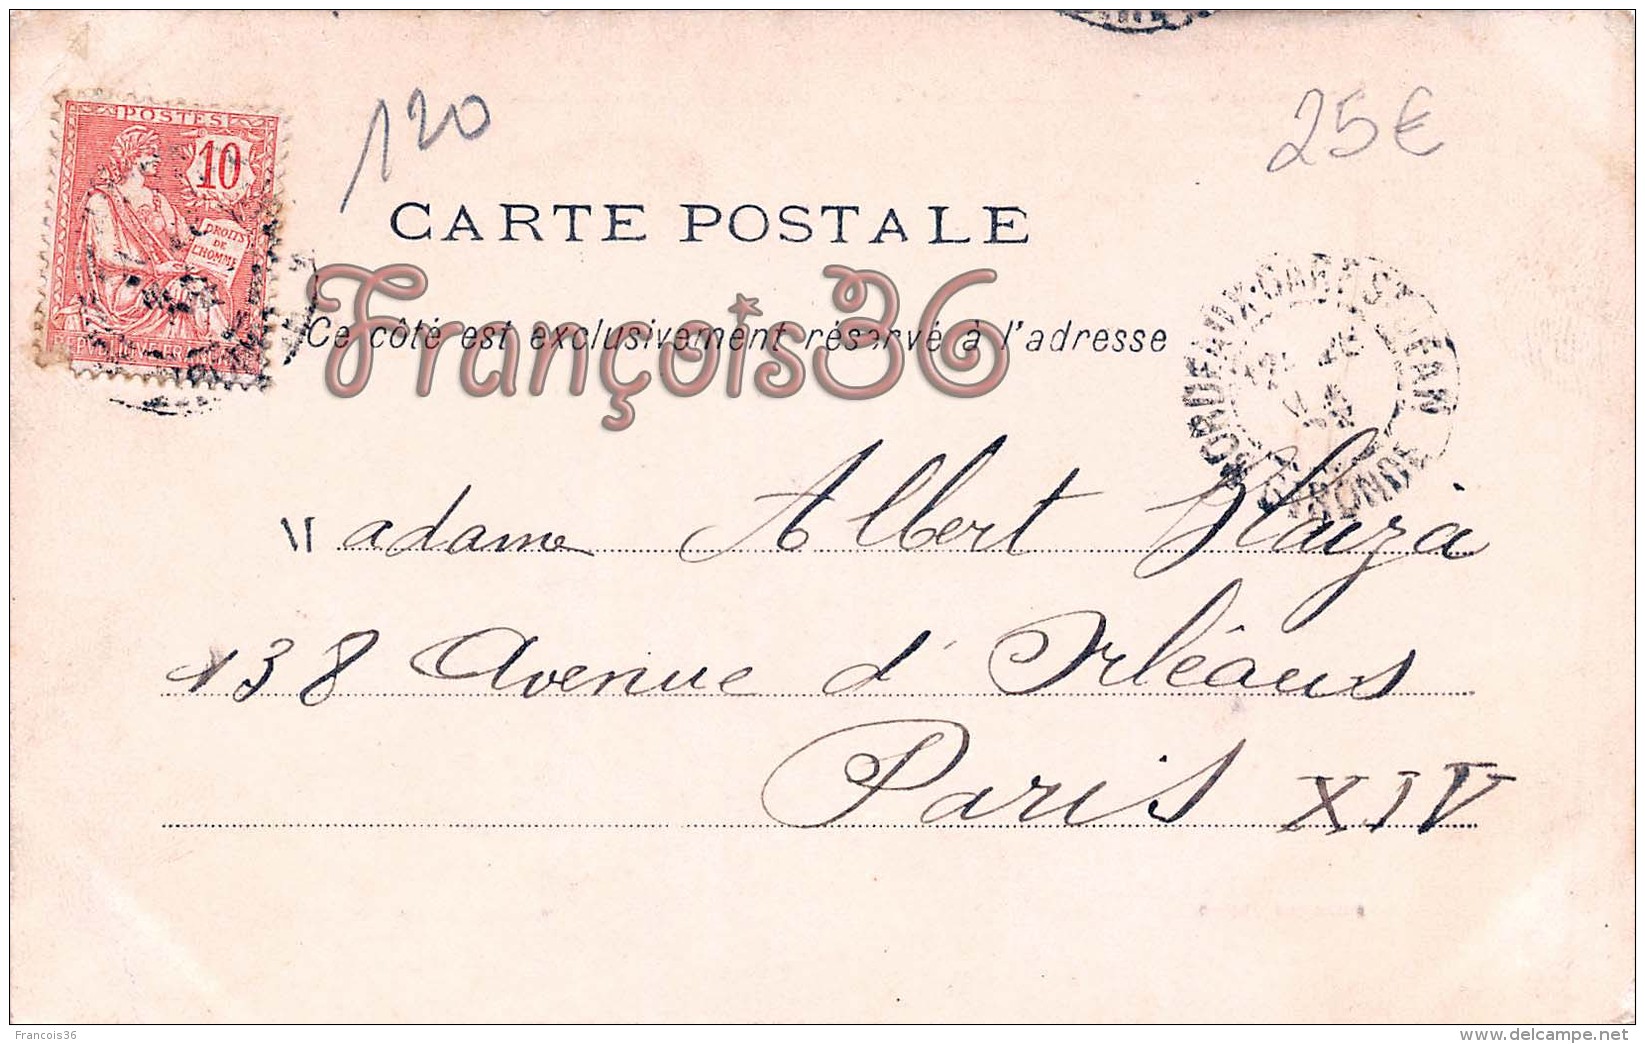 POSTES
10
DROITS
DE
L'HOMME
REPUBLIQUE FRANCAISE
120
25€
CARTE POSTALE
François36
Ce côté est exclusivement réservé à l'adresse
BORDEAUX-GARE ST JEAN
GIRONDE
Madame Albert
138 Avenue d'Orléans
Paris XIV
Francois36
www.delcampe.net